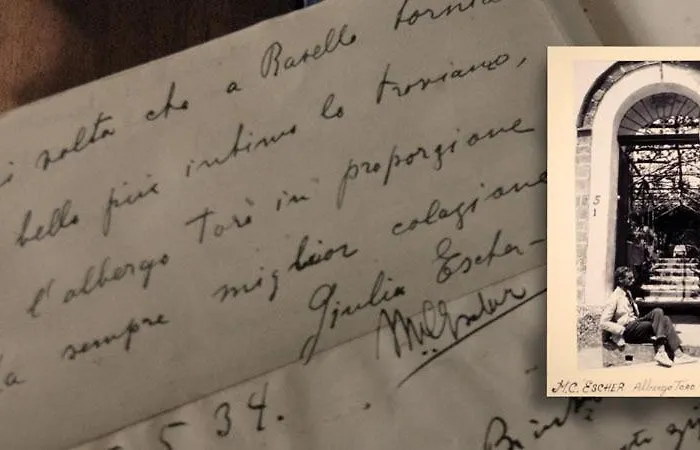 i volta che a Ravello tornia
bello più intimo lo troviamo,
l'albergo Toro in proporzione
da sempre miglior colazione
Giulia Escher-
MCEscher
5 34.
5
1
M.C. ESCHER Albergo Toro